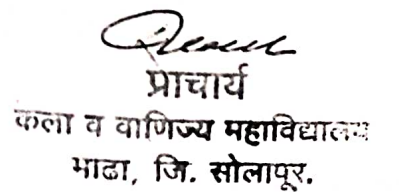 प्राचार्य
कला व वाणिज्य महाविद्यालय
माढा, जि. सोलापूर.